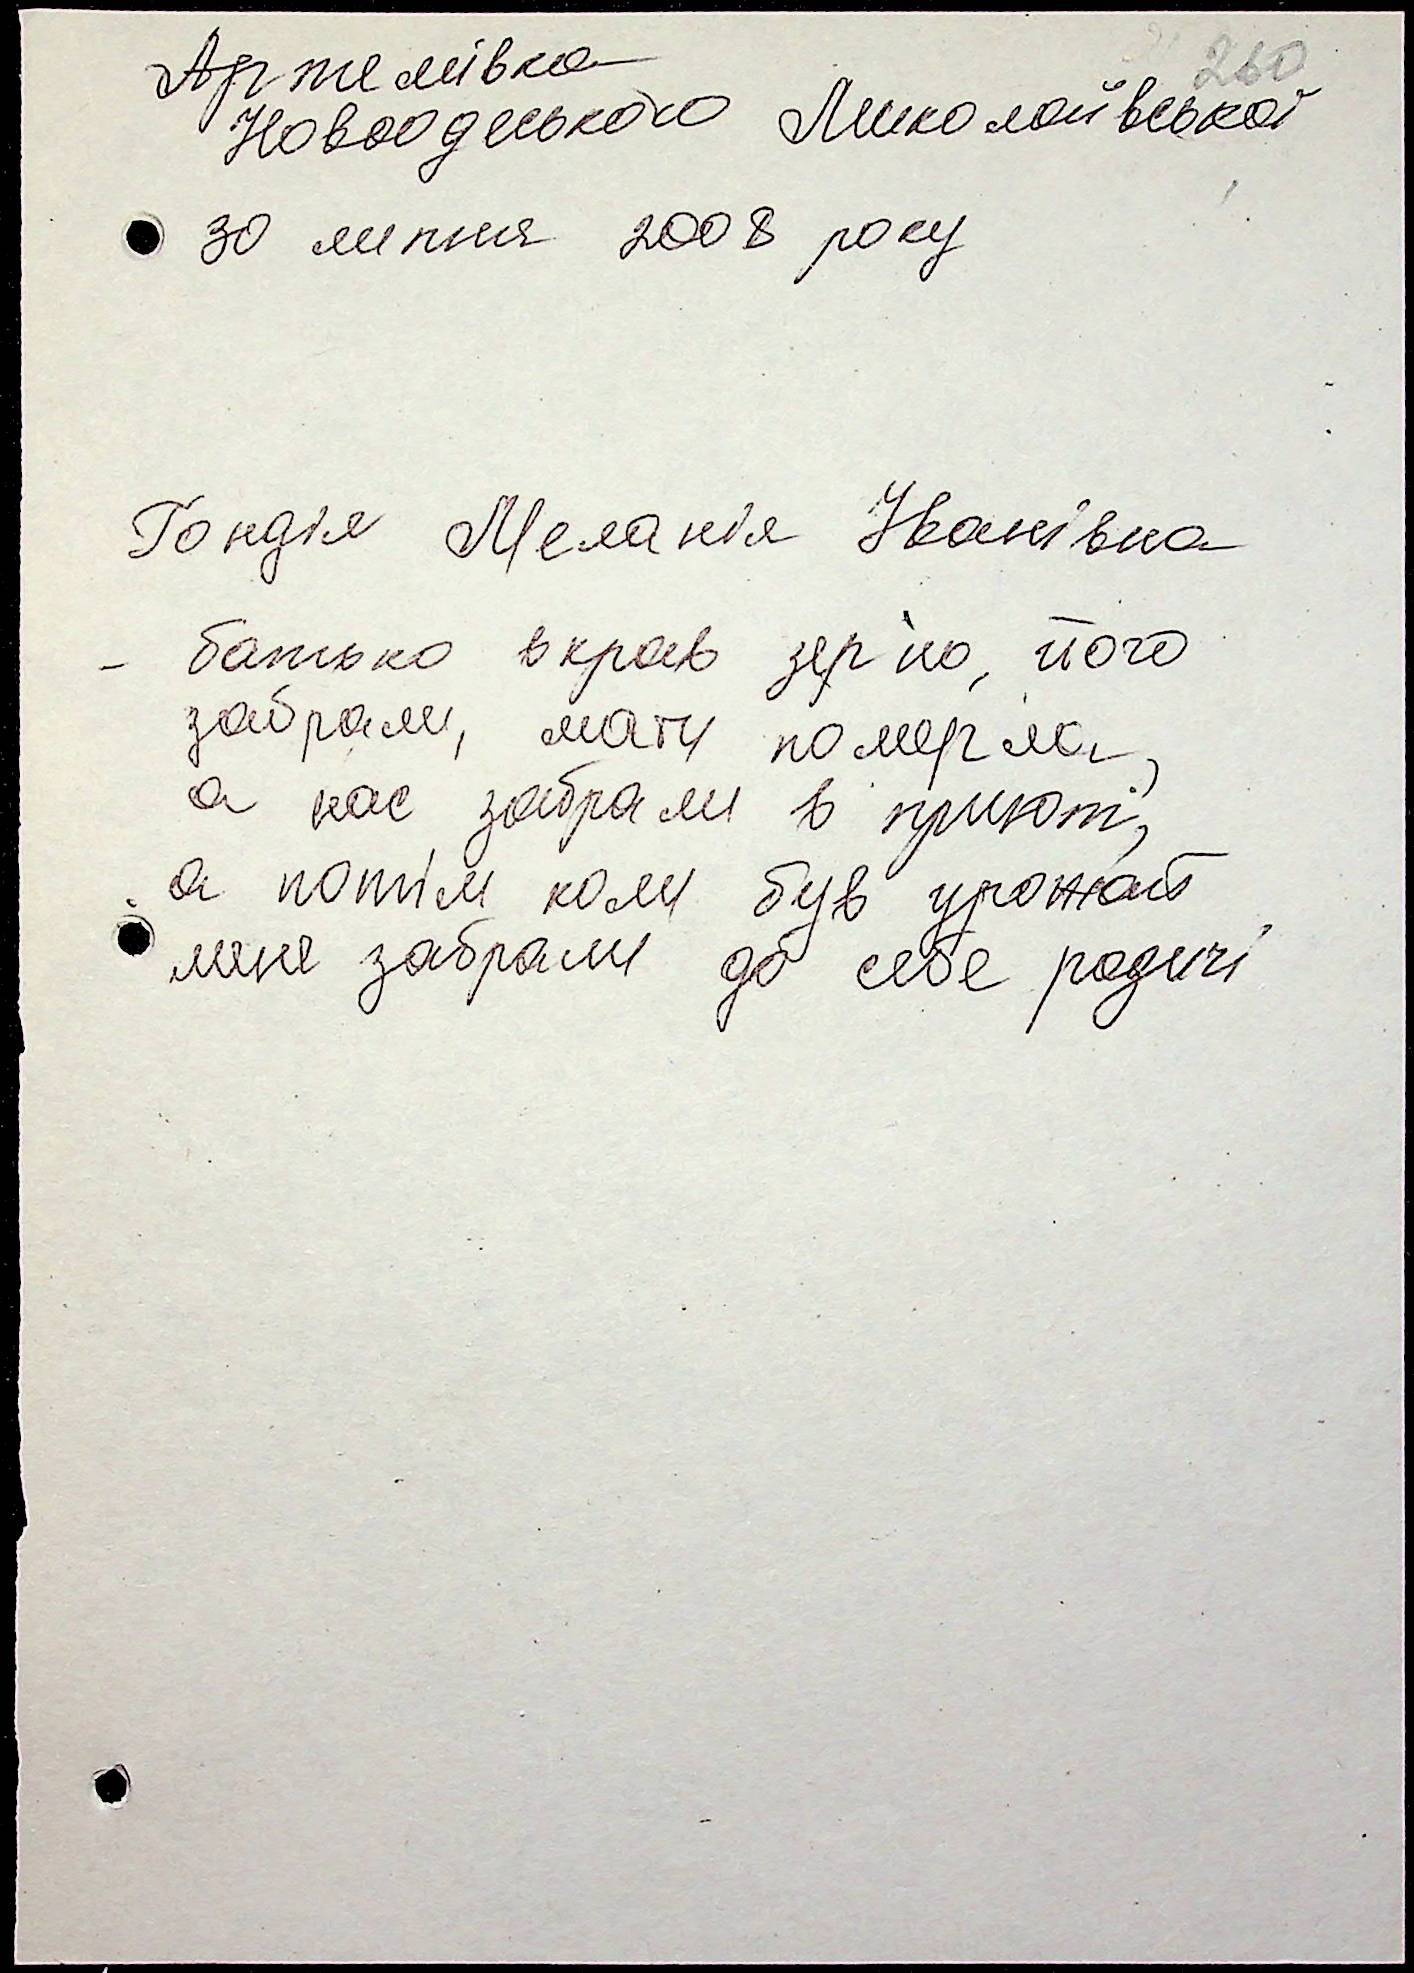 260
Артемівка
Новоодеського Миколаївської
30 липня 2008 року
Гондія Меланія Іванівна
- батько вкрав зерно, його
забрали, мати померла,
а нас забрали в приюті,
а потім коли був урожай
мене забрали до себе родичі